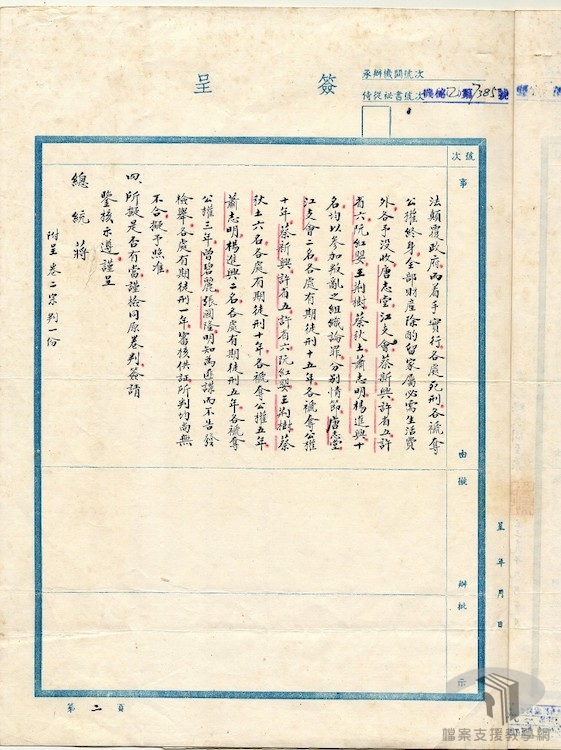 簽呈
承辦機關號次
侍從秘書號次
號次
事由
擬辦
批示
法顛覆政府而着手實行各處死刑各褫奪
公權終身全部財產除酌留家屬必需生活費
外各予沒收唐志堂江文會蔡新興許省五許
省六阮紅嬰王荊樹蔡秋土蕭志明楊進興十
名均以參加叛亂之組織論罪分別情節唐志堂
江文會二名各處有期徒刑十五年各褫奪公權
十年蔡新興許省五許省六阮紅嬰王荊樹蔡
秋土六名各處有期徒刑十年各褫奪公權五年
蕭志明楊進興二名各處有期徒刑五年各褫奪
公權三年曾碧麗張國隆明知為匪諜而不告發
檢舉各處有期徒刑一年審核供証所判均尚無
不合擬予照准
四、所擬是否有當謹檢同原卷判簽請
鑒核示遵謹呈
總統蔣
附呈卷二宗判一份
呈年月日
第二頁
檔案支援教學網